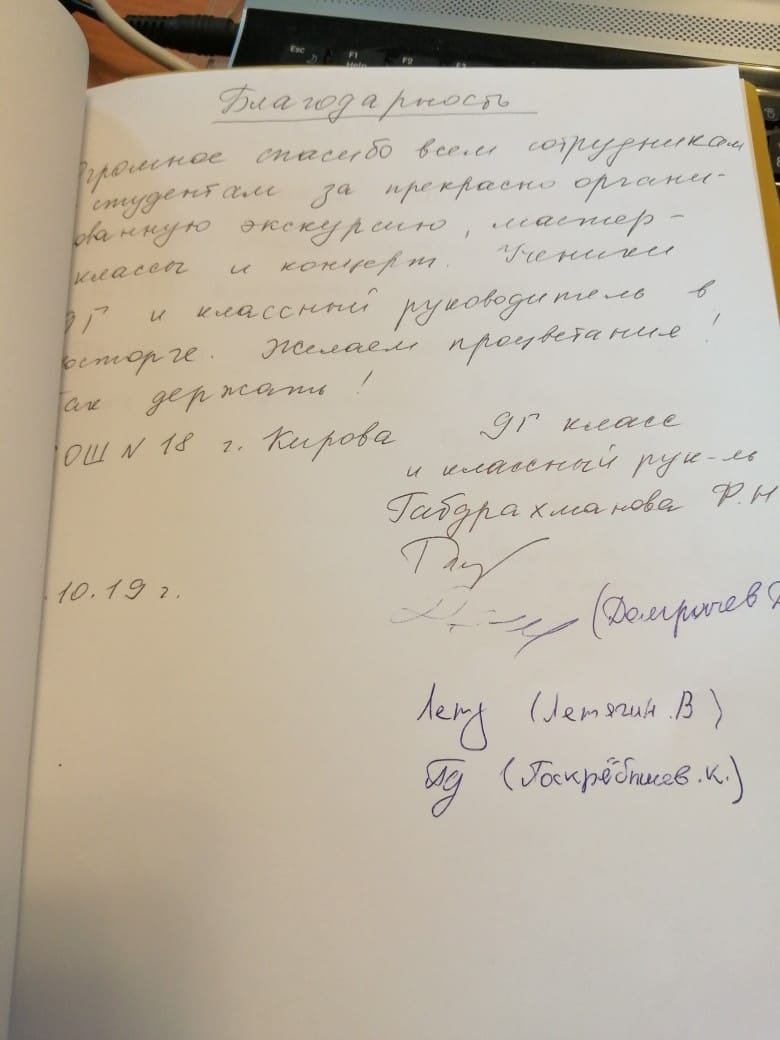 Esc
F1
Help
F2
F3
Благодарность
громное спасибо всем сотрудникам
студентам за прекрасно органи-
ованную экскурсию, мастер-
классы и концерт. Ученики
9Г и классный руководитель в
осторге. Желаем процветания!
ак держать!
ОШ N 18 г. Кирова
9Г класс
и классный рук-ль
Габдрахманова Ф.Н
10.19 г.
(Домрачев Д
(Летягин.В)
(Поскрёбышев.К.)